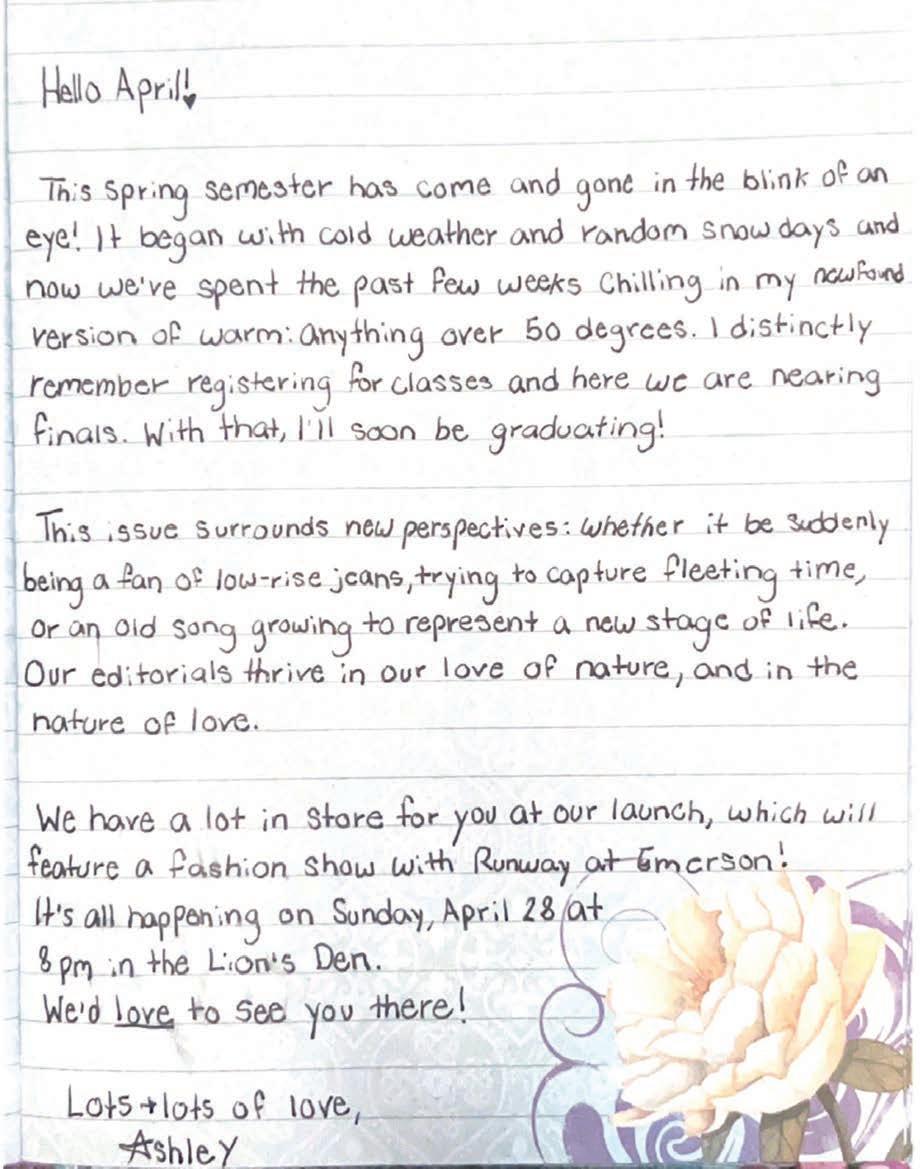 Hello April!
This spring semester has come and gone in the blink of an
eye! It began with cold weather and random snow days and
now we've spent the past few weeks chilling in my newfound
version of warm: anything over 50 degrees. I distinctly
remember registering for classes and here we are nearing
finals. With that, I'll soon be graduating!
This issue surrounds new perspectives: whether it be suddenly
being a fan of low-rise jeans, trying to capture fleeting time,
or an old song growing to represent a new stage of life.
Our editorials thrive in our love of nature, and in the
nature of love.
We have a lot in store for you at our launch, which will
feature a fashion show with Runway at Emerson!
It's all happening on Sunday, April 28 at
8 pm in the Lion's Den.
We'd love to see you there!
Lots + lots of love,
Ashley